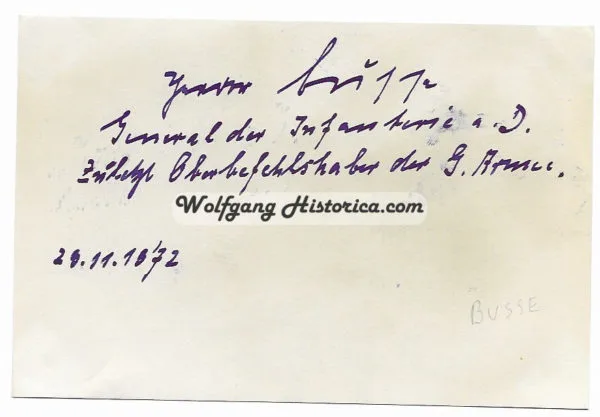 Busse
General der Infanterie a. D.
Zuletzt Oberbefehlshaber der 9. Armee.
Wolfgang Historica.com
BUSSE